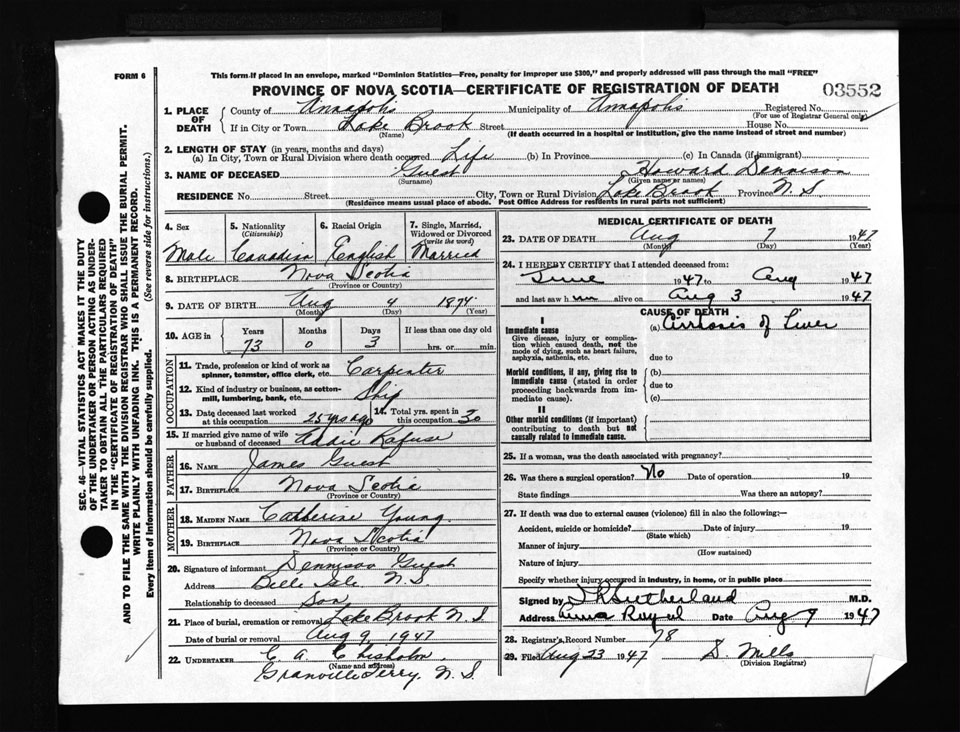 FORM 6
This form if placed in an envelope, marked "Dominion Statistics—Free, penalty for improper use $300," and properly addressed will pass through the mail "FREE"
PROVINCE OF NOVA SCOTIA—CERTIFICATE OF REGISTRATION OF DEATH
03552
1. PLACE OF DEATH
County of Annapolis Municipality of Annapolis Registered No.
(For use of Registrar General only)
If in City or Town Lake Brook Street House No.
(Name) (If death occurred in a hospital or institution, give the name instead of street and number)
2. LENGTH OF STAY (in years, months and days)
(a) In City, Town or Rural Division where death occurred Life (b) In Province (c) In Canada (if immigrant)
3. NAME OF DECEASED Guest Howard Dennison
(Surname) (Given name or names)
RESIDENCE No. Street City, Town or Rural Division Lake Brook Province N. S.
(Residence means usual place of abode. Post Office Address for residents in rural parts not sufficient)
4. Sex
Male
5. Nationality
(Citizenship)
Canadian
6. Racial Origin
English
7. Single, Married, Widowed or Divorced
(write the word)
Married
8. BIRTHPLACE Nova Scotia
(Province or Country)
9. DATE OF BIRTH Aug 4 1874
(Month) (Day) (Year)
10. AGE in
Years Months Days If less than one day old
73 0 3 hrs. or min.
OCCUPATION
11. Trade, profession or kind of work as spinner, teamster, office clerk, etc. Carpenter
12. Kind of industry or business, as cotton-mill, lumbering, bank, etc. Ship
13. Date deceased last worked at this occupation 25 yrs ago
14. Total yrs. spent in this occupation 30
15. If married give name of wife or husband of deceased Addie Rafuse
FATHER
16. NAME James Guest
17. BIRTHPLACE Nova Scotia
(Province or Country)
MOTHER
18. MAIDEN NAME Catherine Young
19. BIRTHPLACE Nova Scotia
(Province or Country)
20. Signature of informant Dennison Guest
Address Belle Isle N S
Relationship to deceased Son
21. Place of burial, cremation or removal Lake Brook N. S.
Date of burial or removal Aug 9, 1947
22. UNDERTAKER C A Chisholm
(Name and address)
Granville Ferry, N. S.
MEDICAL CERTIFICATE OF DEATH
23. DATE OF DEATH Aug 7 1947
(Month) (Day) (Year)
24. I HEREBY CERTIFY that I attended deceased from:
June 1947 to Aug 1947
and last saw him alive on Aug 3 1947
CAUSE OF DEATH
I
Immediate cause
Give disease, injury or complication which caused death, not the mode of dying, such as heart failure, asphyxia, asthenia, etc.
(a) Cirrhosis of Liver
due to
Morbid conditions, if any, giving rise to immediate cause (stated in order proceeding backwards from immediate).
(b)
due to
(c)
II
Other morbid conditions (if important) contributing to death but not causally related to immediate cause.
25. If a woman, was the death associated with pregnancy?
26. Was there a surgical operation? No Date of operation 19
State findings Was there an autopsy?
27. If death was due to external causes (violence) fill in also the following:—
Accident, suicide or homicide? Date of injury 19
(State which)
Manner of injury
(How sustained)
Nature of injury
Specify whether injury occurred in industry, in home, or in public place
Signed by Sutherland M.D.
Address Anna Royal Date Aug 9 1947
28. Registrar's Record Number 78
29. Filed Aug 23 1947 S. Mills
(Division Registrar)
SEC. 46—VITAL STATISTICS ACT MAKES IT THE DUTY
OF THE UNDERTAKER OR PERSON ACTING AS UNDER-
TAKER TO OBTAIN ALL THE PARTICULARS REQUIRED
IN THE "CERTIFICATE OF REGISTRATION OF DEATH"
AND TO FILE THE SAME WITH THE DIVISION REGISTRAR WHO SHALL ISSUE THE BURIAL PERMIT.
WRITE PLAINLY WITH UNFADING INK. THIS IS A PERMANENT RECORD.
Every item of information should be carefully supplied. (See reverse side for instructions.)